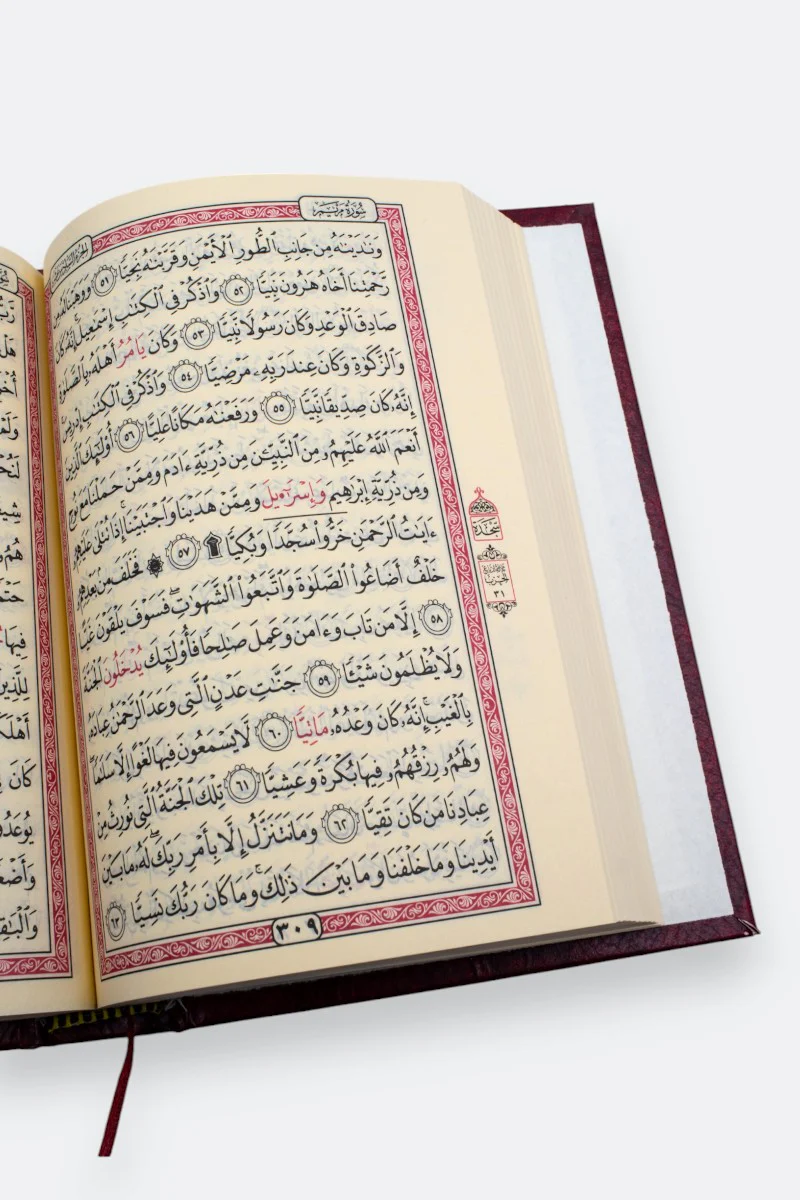 سُورَةُ مَرْيَمَ
وَنَٰدَيْنَٰهُ مِن جَانِبِ اِ۬لطُّورِ اِ۬لْأَيْمَنِ وَقَرَّبْنَٰهُ نَجِيّٗا ٥١ وَوَهَبْنَا لَهُۥ مِن
رَّحْمَتِنَا أَخَاهُ هَٰرُونَ نَبِيّٗا ٥٢ وَاذْكُرْ فِي اِ۬لْكِتَٰبِ إِسْمَٰعِيلَ إِنَّهُۥ كَانَ
صَادِقَ اَ۬لْوَعْدِ وَكَانَ رَسُولٗا نَّبِيّٗا ٥٣ وَكَانَ يَامُرُ أَهْلَهُۥ بِالصَّلَوٰةِ
وَالزَّكَوٰةِ وَكَانَ عِندَ رَبِّهِۦ مَرْضِيّٗا ٥٤ وَاذْكُرْ فِي اِ۬لْكِتَٰبِ إِدْرِيسَ
إِنَّهُۥ كَانَ صِدِّيقٗا نَّبِيّٗا ٥٥ وَرَفَعْنَٰهُ مَكَانًا عَلِيًّا ٥٦ أُوْلَٰٓئِكَ اَ۬لذِينَ
أَنْعَمَ اَ۬للَّهُ عَلَيْهِم مِّنَ اَ۬لنَّبِيِّـۧنَ مِن ذُرِّيَّةِ ءَادَمَ وَمِمَّنْ حَمَلْنَا مَعَ نُوحٖ
وَمِن ذُرِّيَّةِ إِبْرَٰهِيمَ وَإِسْرَآءِيلَ وَمِمَّنْ هَدَيْنَا وَاجْتَبَيْنَا إِذَا تُتْلَىٰ عَلَيْهِمْ
ءَايَٰتُ اُ۬لرَّحْمَٰنِ خَرُّواْ سُجَّدٗا وَبُكِيّٗا ۩ ٥٧ ۞ فَخَلَفَ مِنۢ بَعْدِهِمْ
خَلْفٌ أَضَاعُواْ اُ۬لصَّلَوٰةَ وَاتَّبَعُواْ اُ۬لشَّهَوَٰتِ فَسَوْفَ يَلْقَوْنَ غَيًّا
٥٨ إِلَّا مَن تَابَ وَءَامَنَ وَعَمِلَ صَٰلِحٗا فَأُوْلَٰٓئِكَ يُدْخَلُونَ اَ۬لْجَنَّةَ
وَلَا يُظْلَمُونَ شَيْـٔٗا ٥٩ جَنَّٰتِ عَدْنٍ اِ۬لتِي وَعَدَ اَ۬لرَّحْمَٰنُ عِبَادَهُۥ
بِالْغَيْبِ إِنَّهُۥ كَانَ وَعْدُهُۥ مَاتِيّٗا ٦٠ لَّا يَسْمَعُونَ فِيهَا لَغْوًا إِلَّا سَلَٰمٗا
وَلَهُمْ رِزْقُهُمْ فِيهَا بُكْرَةٗ وَعَشِيّٗا ٦١ تِلْكَ اَ۬لْجَنَّةُ اُ۬لتِي نُورِثُ مِنْ
عِبَادِنَا مَن كَانَ تَقِيّٗا ٦٢ وَمَا نَتَنَزَّلُ إِلَّا بِأَمْرِ رَبِّكَ لَهُۥ مَا بَيْنَ
أَيْدِينَا وَمَا خَلْفَنَا وَمَا بَيْنَ ذَٰلِكَ وَمَا كَانَ رَبُّكَ نَسِيّٗا ٦٣
٣٠٩
سَجْدَة
حِزْب
٣١